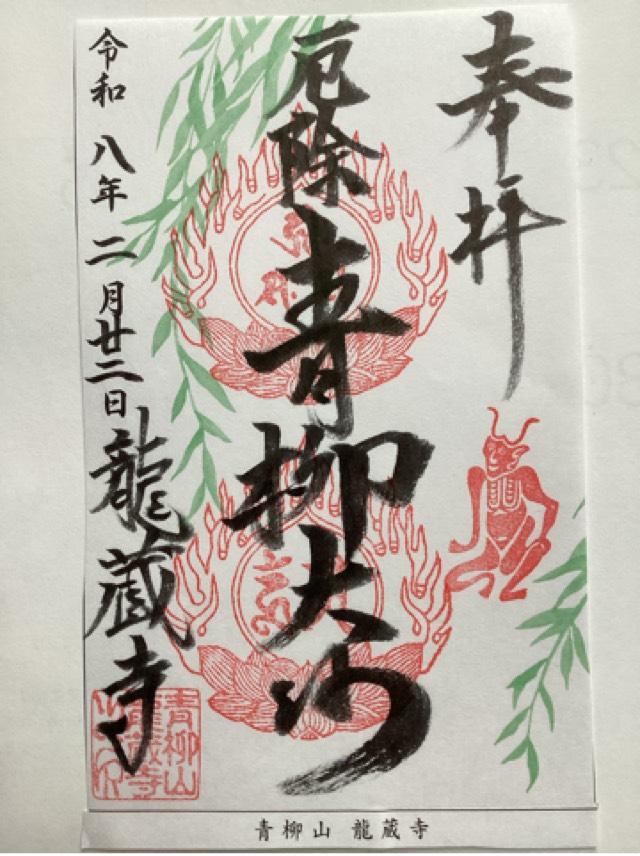 奉拝
厄除 青柳大師
令和八年二月廿二日
龍蔵寺
青柳山
龍蔵寺
青柳山 龍蔵寺